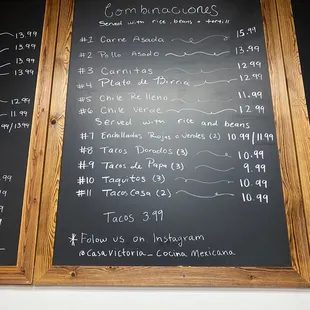 13.99
13.99
13.99
13.99
12.99
11.99
13.99
10.99
9.99
10.99
10.99
Combinaciones
Served with rice, beans & tortill
#1 Carne Asada 15.99
#2 Pollo Asado 13.99
#3 Carnitas 12.99
#4 Plato de Birria 12.99
#5 Chile Relleno 11.99
#6 Chile verde 12.99
Served with rice and beans
#7 Enchiladas Rojas o verdes (2) 10.99/11.99
#8 Tacos Dorados (3) 10.99
#9 Tacos de Papa (3) 9.99
#10 Taquitos (3) 10.99
#11 Tacos Casa (2) 10.99
Tacos 3.99
Folow us on Instagram
@CasaVictoria_Cocina Mexicana